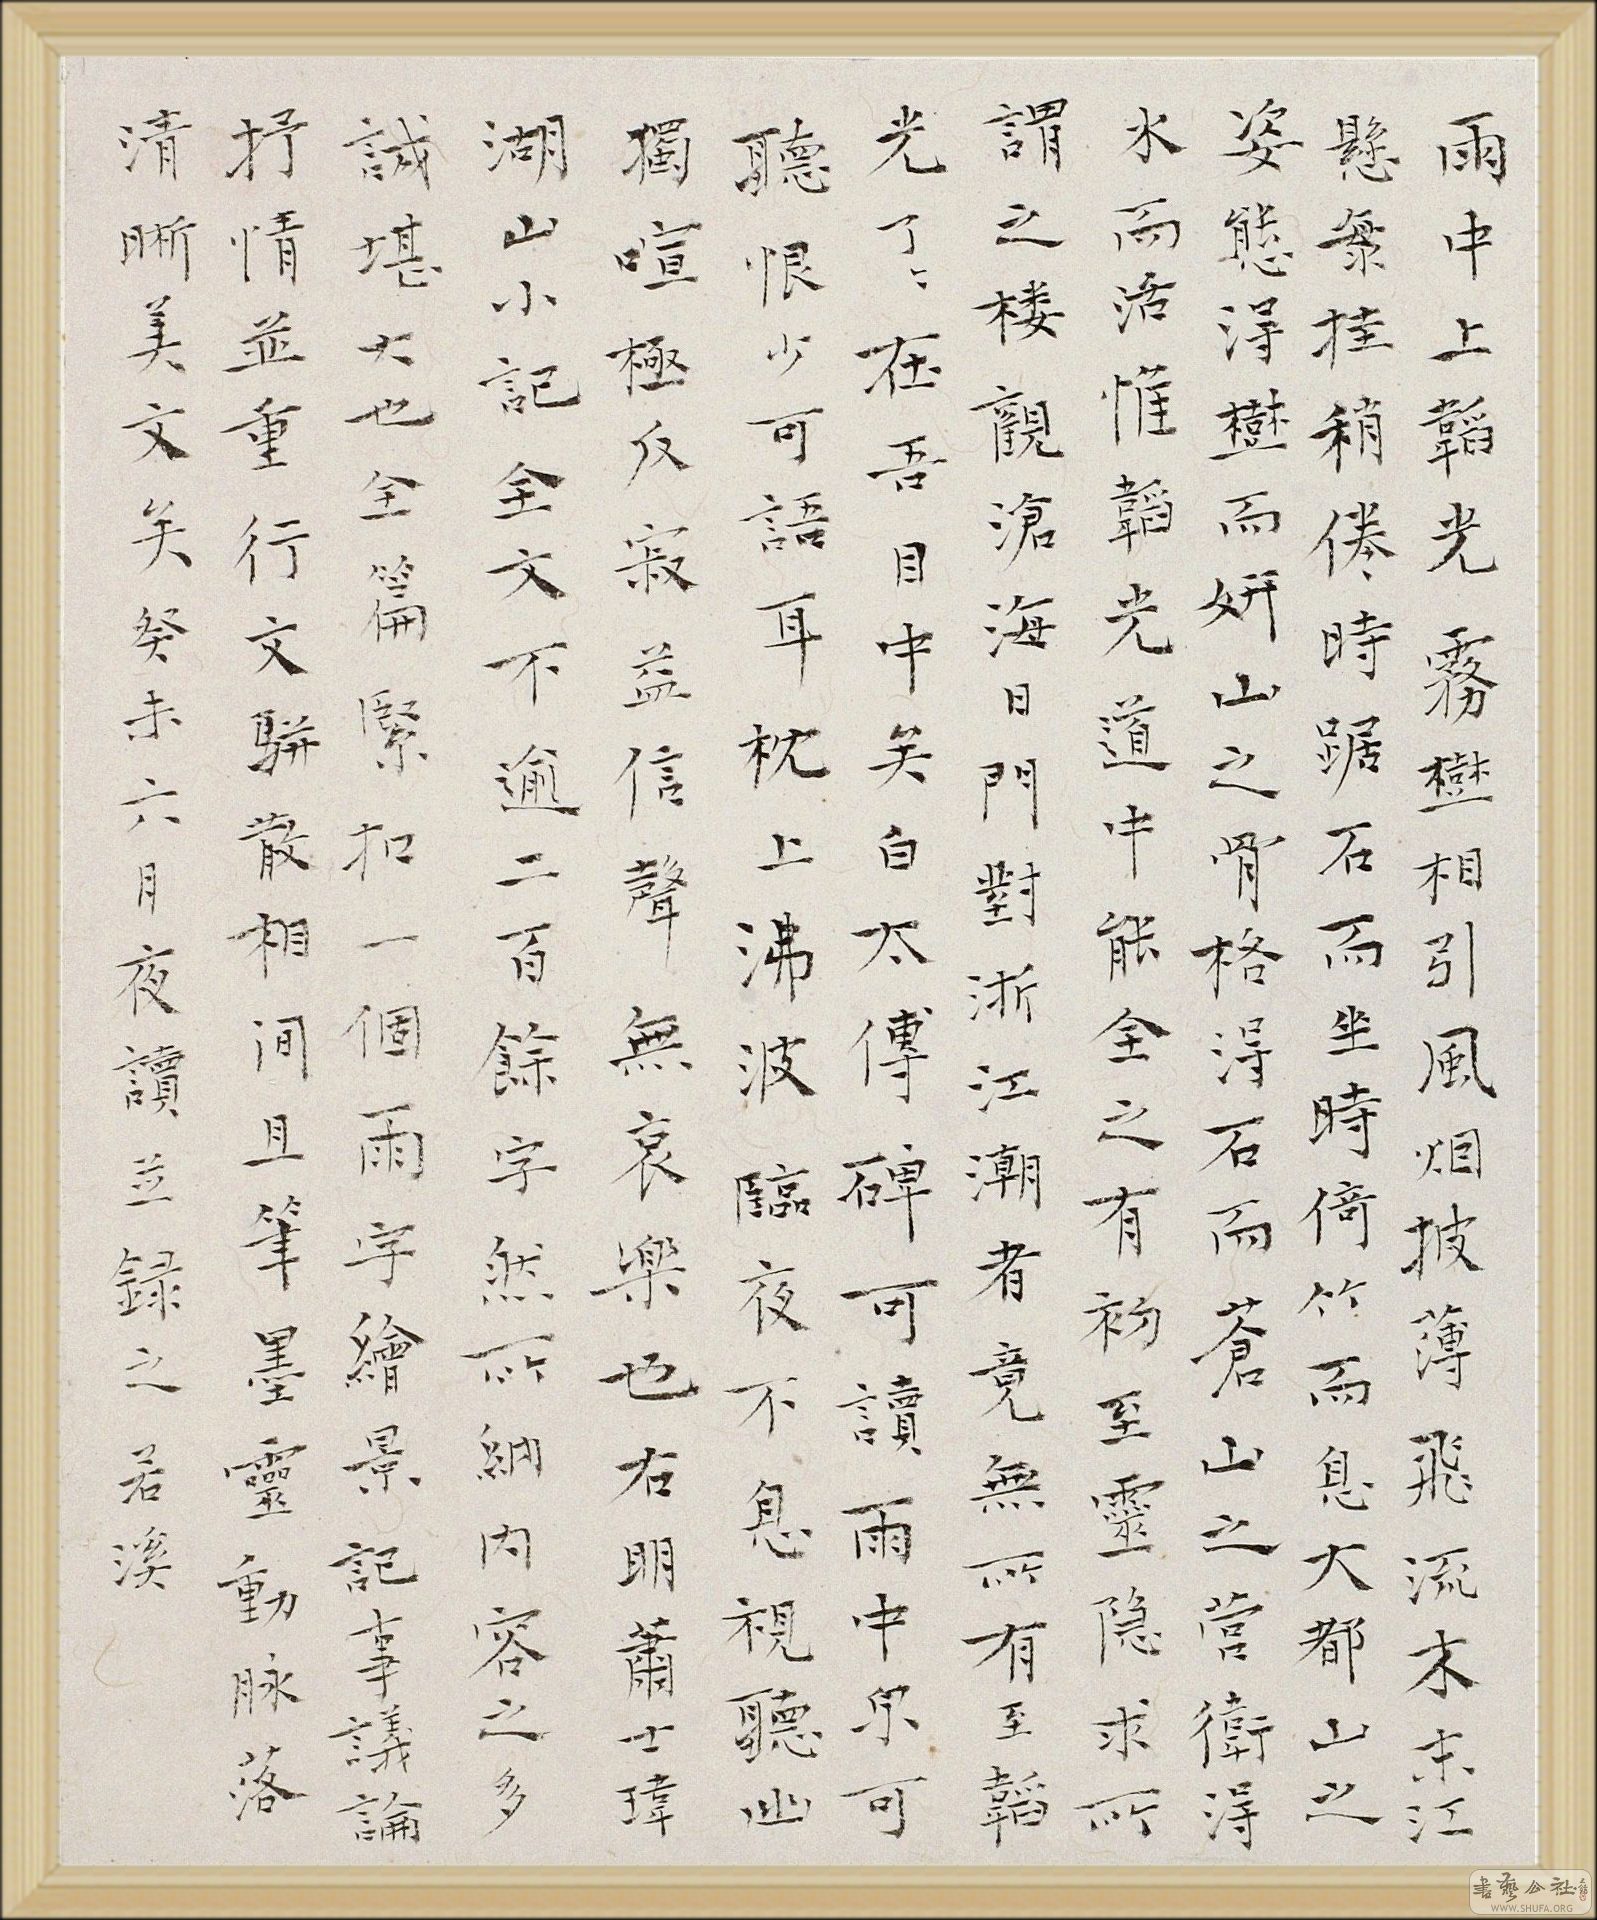 雨中上韜光霧樹相引風烟披薄飛流木末江
懸海挂稍倦時踞石而坐時倚竹而息大都山之
姿態得樹而妍山之骨格得石而蒼山之營衛得
水而活惟韜光道中能全之有初至靈隱求所
謂之楼觀滄海日門對浙江潮者竟無所有至韜
光了了在吾目中矣白太傅碑可讀雨中泉可
聽恨少可語耳枕上沸波臨夜不息視聽幽
獨喧極反寂益信聲無哀樂也右明蕭士瑋
湖山小記全文不逾二百餘字然所納内容之多
誠堪大也全篇緊扣一個雨字繪景記事議論
抒情並重行文駢散相间且筆墨靈動脉落
清晰美文矣癸未六月夜讀並録之若溪
書藝公社
WWW.SHUFA.ORG